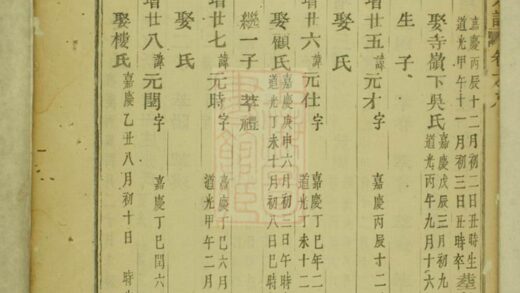 嘉慶丙辰十二月初二日丑時生
道光甲午十一月初三日丑時卒
娶寺嶺下吳氏
嘉慶戊辰三月初九
道光丙午九月十六
生子
增廿五諱元才字
嘉慶丙辰十二
娶氏
增廿六諱元仕字
嘉慶丁巳年二
道光丁未十二
娶顧氏
嘉慶庚申六月初三日午時
道光丁未十月初八日巳時
繼一子 萃禮
增廿七諱元時字
嘉慶丁巳六月
道光甲午二月
娶氏
增廿八諱元閏字
嘉慶丁巳閏六
娶樓氏
嘉慶乙丑八月初十日 時